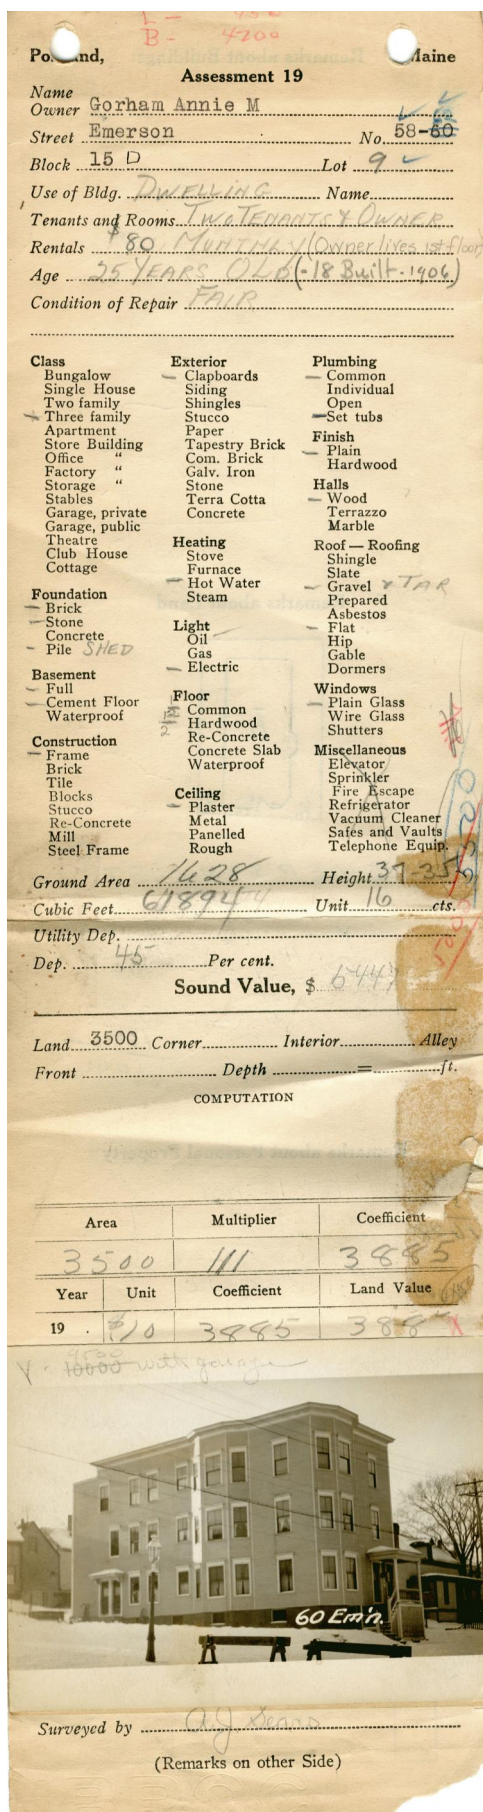 L - 950
B - 4200
Portland, Maine
Assessment 19
Name
Owner Gorham Annie M
Street Emerson No. 58-60
Block 15 D Lot 9
Use of Bldg. DWELLING Name
Tenants and Rooms TWO TENANTS & OWNER
Rentals $80 MONTHLY (Owner lives 1st floor)
Age 25 YEARS OLD (-18 Built - 1906)
Condition of Repair FAIR
Class
Bungalow
Single House
Two family
Three family
Apartment
Store Building
Office "
Factory "
Storage "
Stables
Garage, private
Garage, public
Theatre
Club House
Cottage
Foundation
Brick
Stone
Concrete
Pile SHED
Basement
Full
Cement Floor
Waterproof
Construction
Frame
Brick
Tile
Blocks
Stucco
Re-Concrete
Mill
Steel Frame
Exterior
Clapboards
Siding
Shingles
Stucco
Paper
Tapestry Brick
Com. Brick
Galv. Iron
Stone
Terra Cotta
Concrete
Heating
Stove
Furnace
Hot Water
Steam
Light
Oil
Gas
Electric
Floor
Common
Hardwood
Re-Concrete
Concrete Slab
Waterproof
Ceiling
Plaster
Metal
Panelled
Rough
Plumbing
Common
Individual
Open
Set tubs
Finish
Plain
Hardwood
Halls
Wood
Terrazzo
Marble
Roof — Roofing
Shingle
Slate
Gravel & TAR
Prepared
Asbestos
Flat
Hip
Gable
Dormers
Windows
Plain Glass
Wire Glass
Shutters
Miscellaneous
Elevator
Sprinkler
Fire Escape
Refrigerator
Vacuum Cleaner
Safes and Vaults
Telephone Equip.
Ground Area 1628 Height 37-35
Cubic Feet 61894 Unit 16 cts.
Utility Dep.
Dep. 45 Per cent.
Sound Value, $ 5447
Land 3500 Corner Interior Alley
Front Depth = ft.
COMPUTATION
Area Multiplier Coefficient
3500 111 3885
Year Unit Coefficient Land Value
19 . $10 3885 388
V - 9500
10000 with garage
60 Em'n.
Surveyed by A J Sears
(Remarks on other Side)